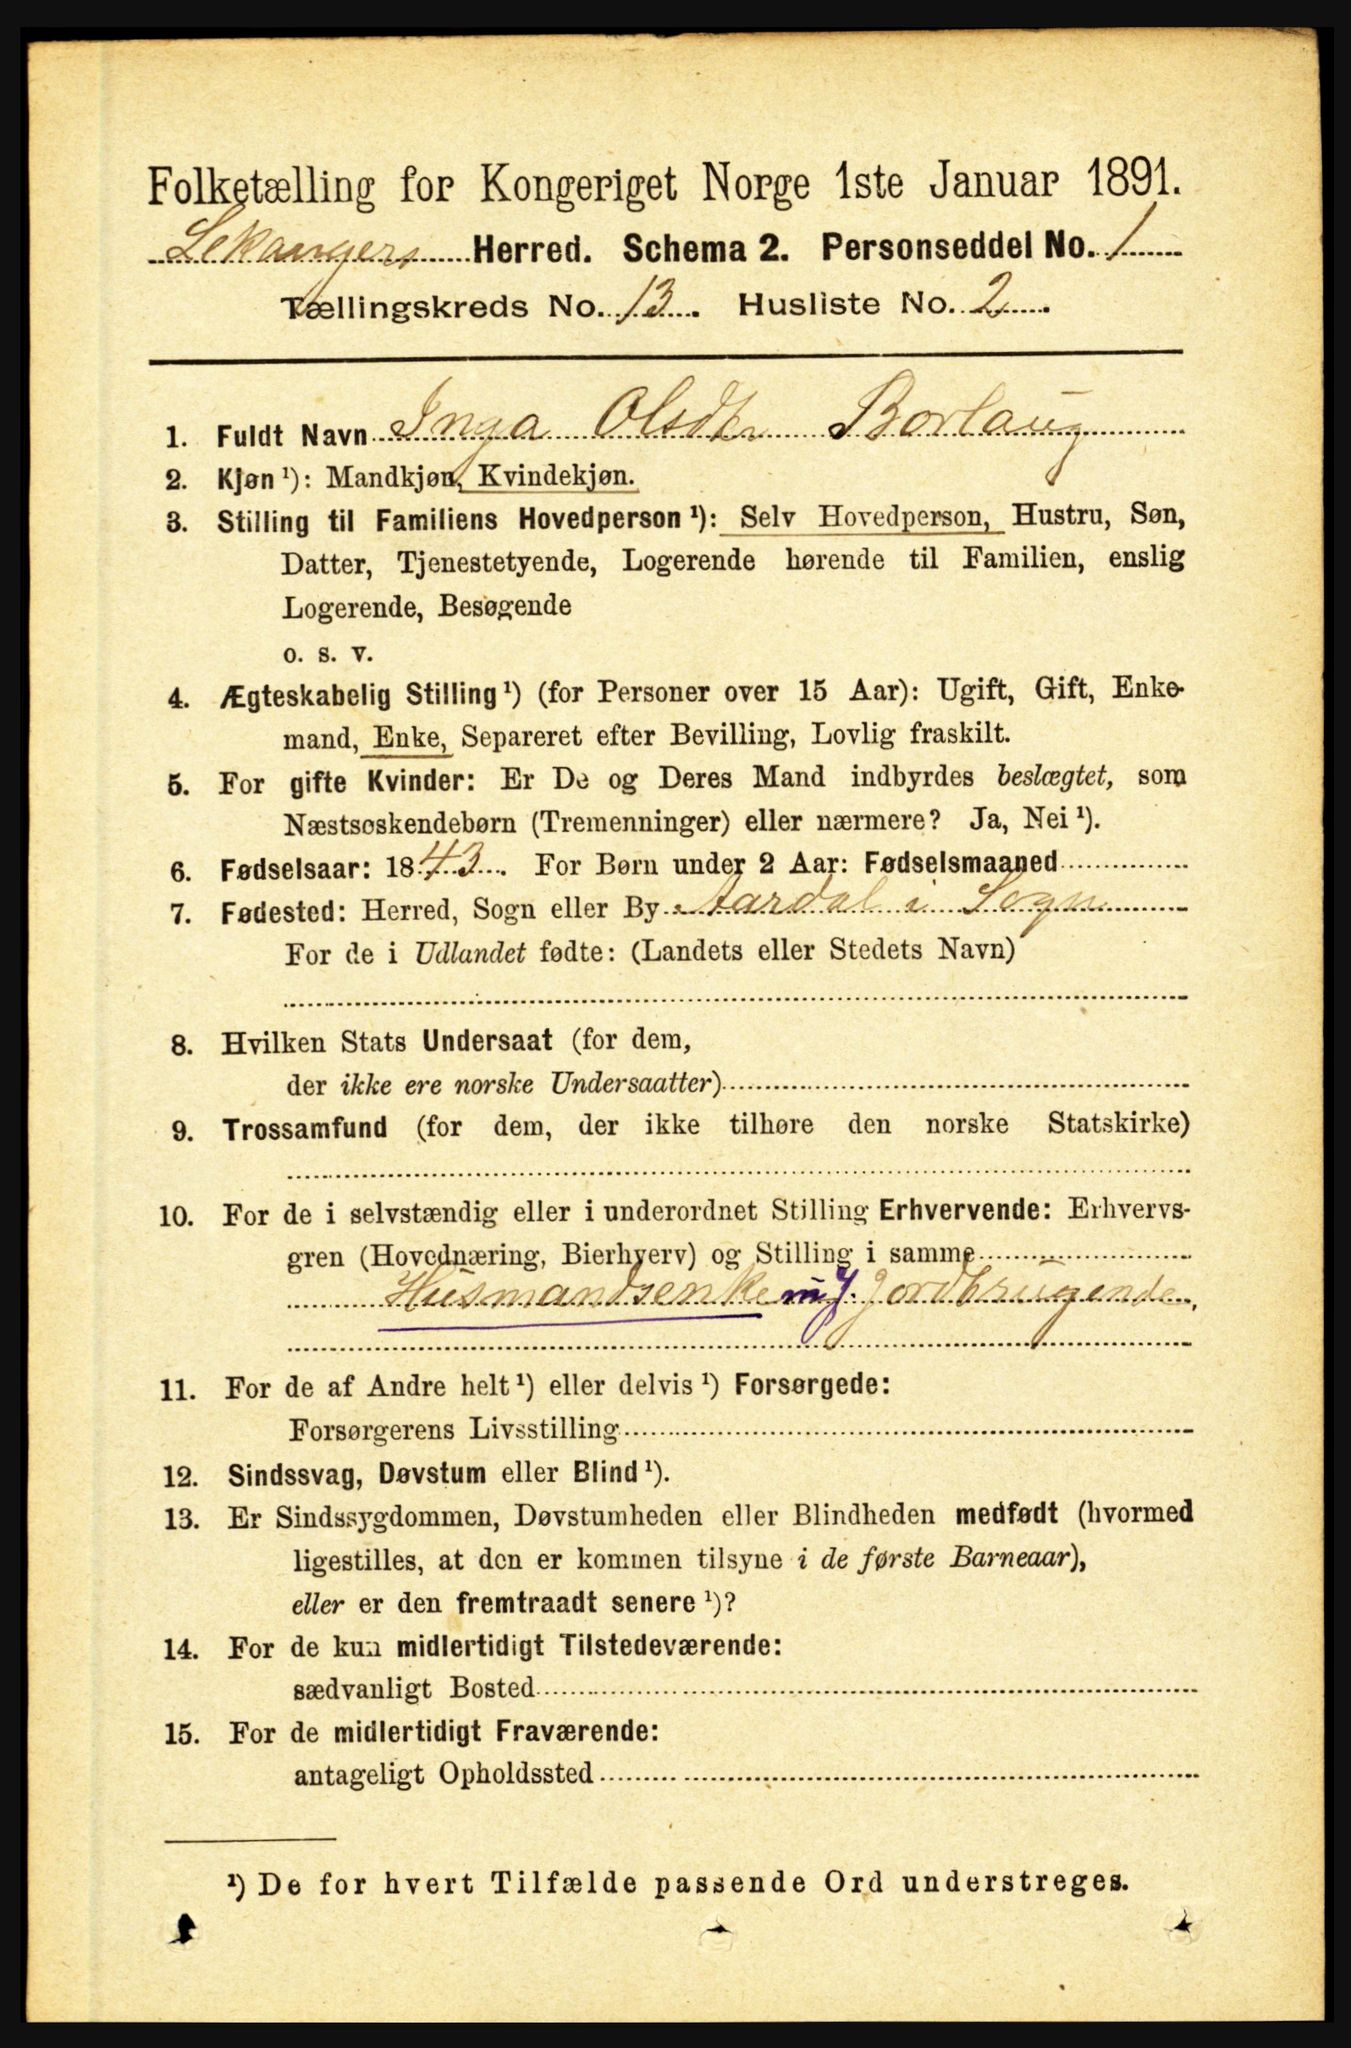 Folketælling for Kongeriget Norge 1ste Januar 1891.
Lekangers Herred. Schema 2. Personseddel No. 1
Tællingskreds No. 13. Husliste No. 2
1. Fuldt Navn Inga Olsdtr Borlaug
2. Kjøn ¹): Mandkjøn, Kvindekjøn.
3. Stilling til Familiens Hovedperson ¹): Selv Hovedperson, Hustru, Søn,
Datter, Tjenestetyende, Logerende hørende til Familien, enslig
Logerende, Besøgende
o. s. v.
4. Ægteskabelig Stilling ¹) (for Personer over 15 Aar): Ugift, Gift, Enke-
mand, Enke, Separeret efter Bevilling, Lovlig fraskilt.
5. For gifte Kvinder: Er De og Deres Mand indbyrdes beslægtet, som
Næstsøskendebørn (Tremenninger) eller nærmere? Ja, Nei ¹).
6. Fødselsaar: 1843. For Børn under 2 Aar: Fødselsmaaned
7. Fødested: Herred, Sogn eller By Aardal i Sogn
For de i Udlandet fødte: (Landets eller Stedets Navn)
8. Hvilken Stats Undersaat (for dem,
der ikke ere norske Undersaatter)
9. Trossamfund (for dem, der ikke tilhøre den norske Statskirke)
10. For de i selvstændig eller i underordnet Stilling Erhvervende: Erhvervs-
gren (Hovednæring, Bierhverv) og Stilling i samme
Husmandsenke m J. Jordbrugende,
11. For de af Andre helt ¹) eller delvis ¹) Forsørgede:
Forsørgerens Livsstilling
12. Sindssvag, Døvstum eller Blind ¹).
13. Er Sindssygdommen, Døvstumheden eller Blindheden medfødt (hvormed
ligestilles, at den er kommen tilsyne i de første Barneaar),
eller er den fremtraadt senere ¹)?
14. For de kun midlertidigt Tilstedeværende:
sædvanligt Bosted
15. For de midlertidigt Fraværende:
antageligt Opholdssted
¹) De for hvert Tilfælde passende Ord understreges.